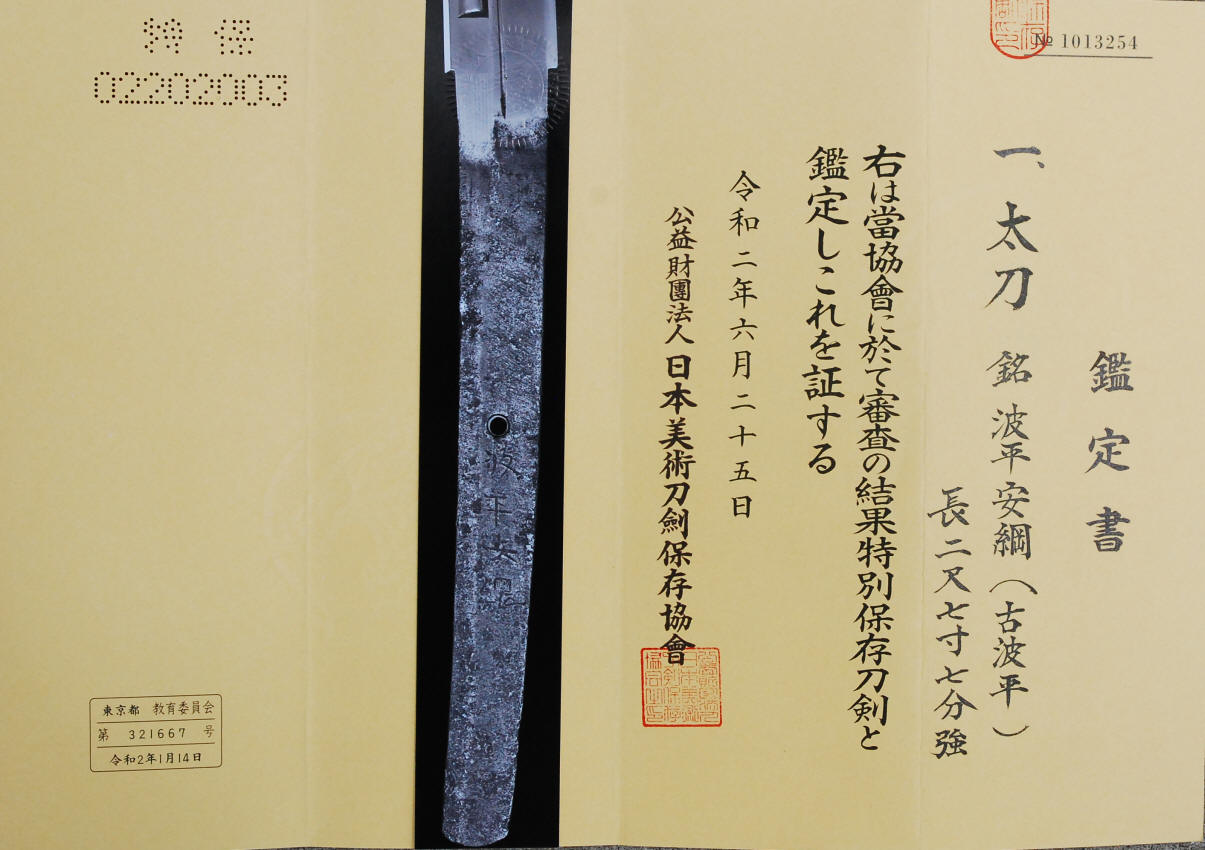 № 1013254
鑑定書
一、太刀 銘 波平安綱(古波平)
長二尺七寸七分強
右は當協會に於て審査の結果特別保存刀剣と
鑑定しこれを証する
令和二年六月二十五日
公益財團法人 日本美術刀劍保存協會
波平安
特保
02202003
東京都 教育委員会
第 321667 号
令和2年1月14日